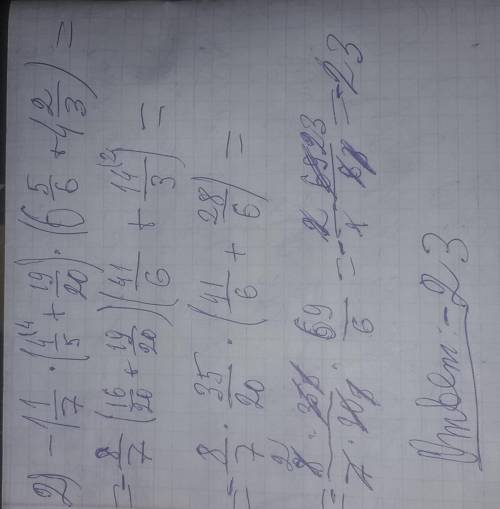 2) -1 1/7 · (4/5 + 19/20) · (6 5/6 + 4 2/3) =
= - 8/7 (16/20 + 19/20) (41/6 + 14/3) =
= - 8/7 · 35/20 · (41/6 + 28/6) =
= - 69/6 = - = -23
Ответ: -23